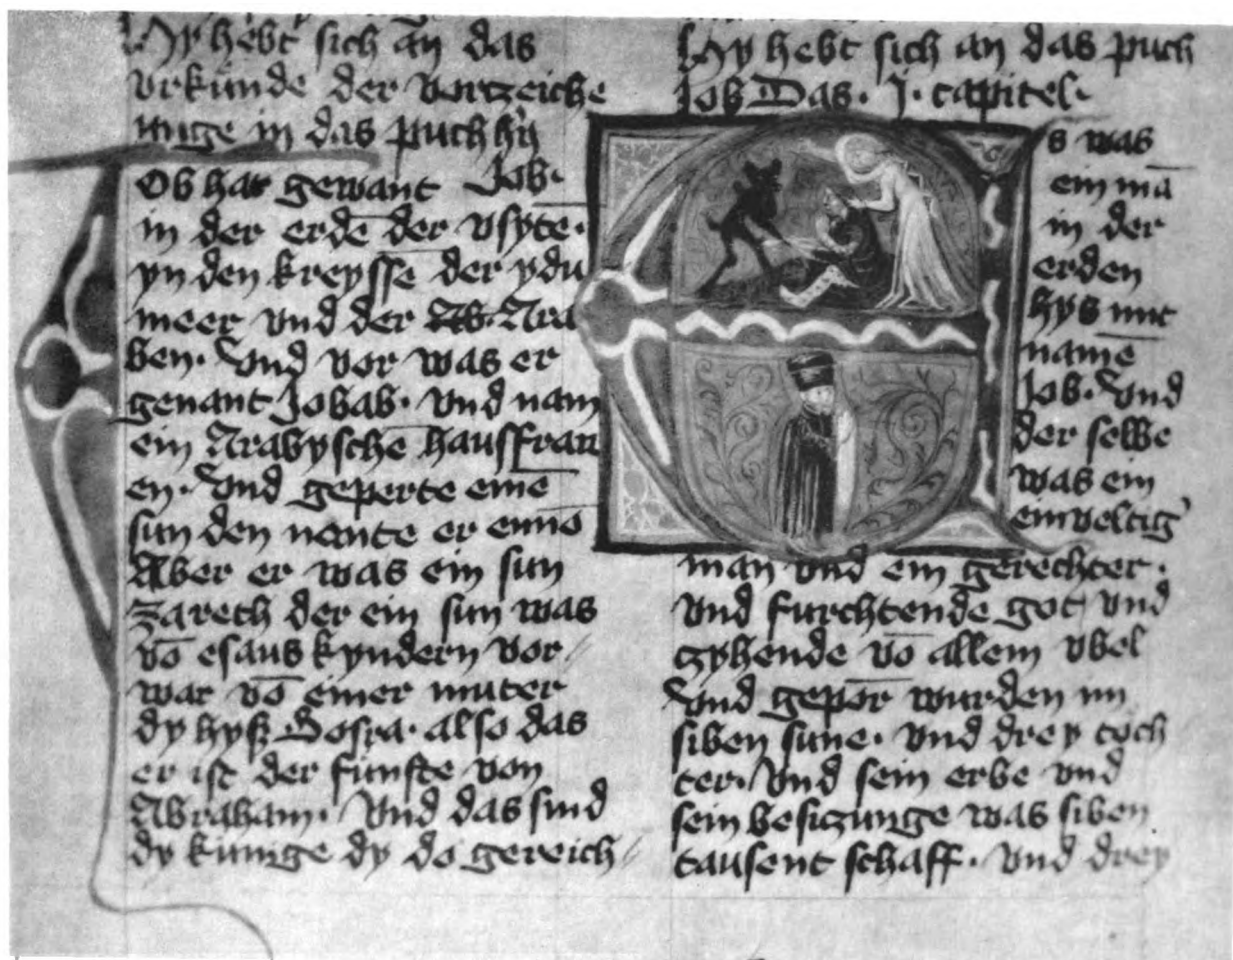 Hy hebt sich an das
vrkunde der vorzeiche
nuge in das puch hy
Ob hat gewant Job·
in der erdē der vsyte·
yn den kreysse der ydu
meer vnd der Ab·Ara
ben· Vnd vor was er
genant Jobab· vnd nam
ein Arabyschē hausfraw
en· Vnd geperte einē
sun den nente er ennō
Aber er was ein sun
zareth der ein sun was
vō esaus kyndern vor
war vō einer muter
dy hyß Bosra· also das
er ist der funfte von
Abraham· Vnd das sind
dy kunige dy do gereich
Hy hebt sich an das puch
Job Das· j· capitel·
s was
ein mā
in der
erden
hys mit
namē
Job· Vnd
der selbe
was ein
einveltig'
man vnd ein gerechter·
vnd furchtende got vnd
zyhende vō allem vbel
Vnd geporn wurden im
siben sune· vnd drey toch
ter· Vnd sein erbe vnd
sein besiczunge was siben
tausent schaff· vnd drey